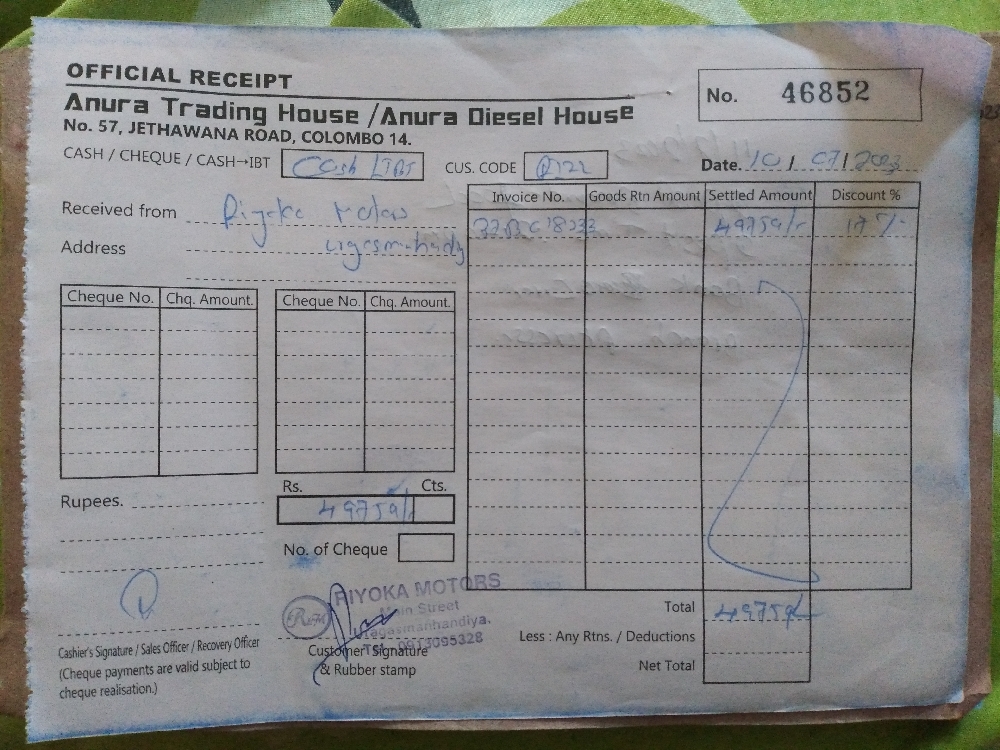 OFFICIAL RECEIPT
No. 46852
Anura Trading House / Anura Diesel House
No. 57, JETHAWANA ROAD, COLOMBO 14.
CASH / CHEQUE / CASH→IBT Cash IBT CUS. CODE Date. 10 / 07 /
Received from Riyoka Motors
Address
Invoice No. Goods Rtn Amount Settled Amount Discount %
49759/- 17 %
Cheque No. Chq. Amount. Cheque No. Chq. Amount.
Rupees.
Rs. Cts.
49759/-
No. of Cheque
RIYOKA MOTORS
Main Street
Tel: 0913095328
Total 49759/-
Less : Any Rtns. / Deductions
Net Total
Cashier's Signature / Sales Officer / Recovery Officer
(Cheque payments are valid subject to
cheque realisation.)
Customer Signature
& Rubber stamp